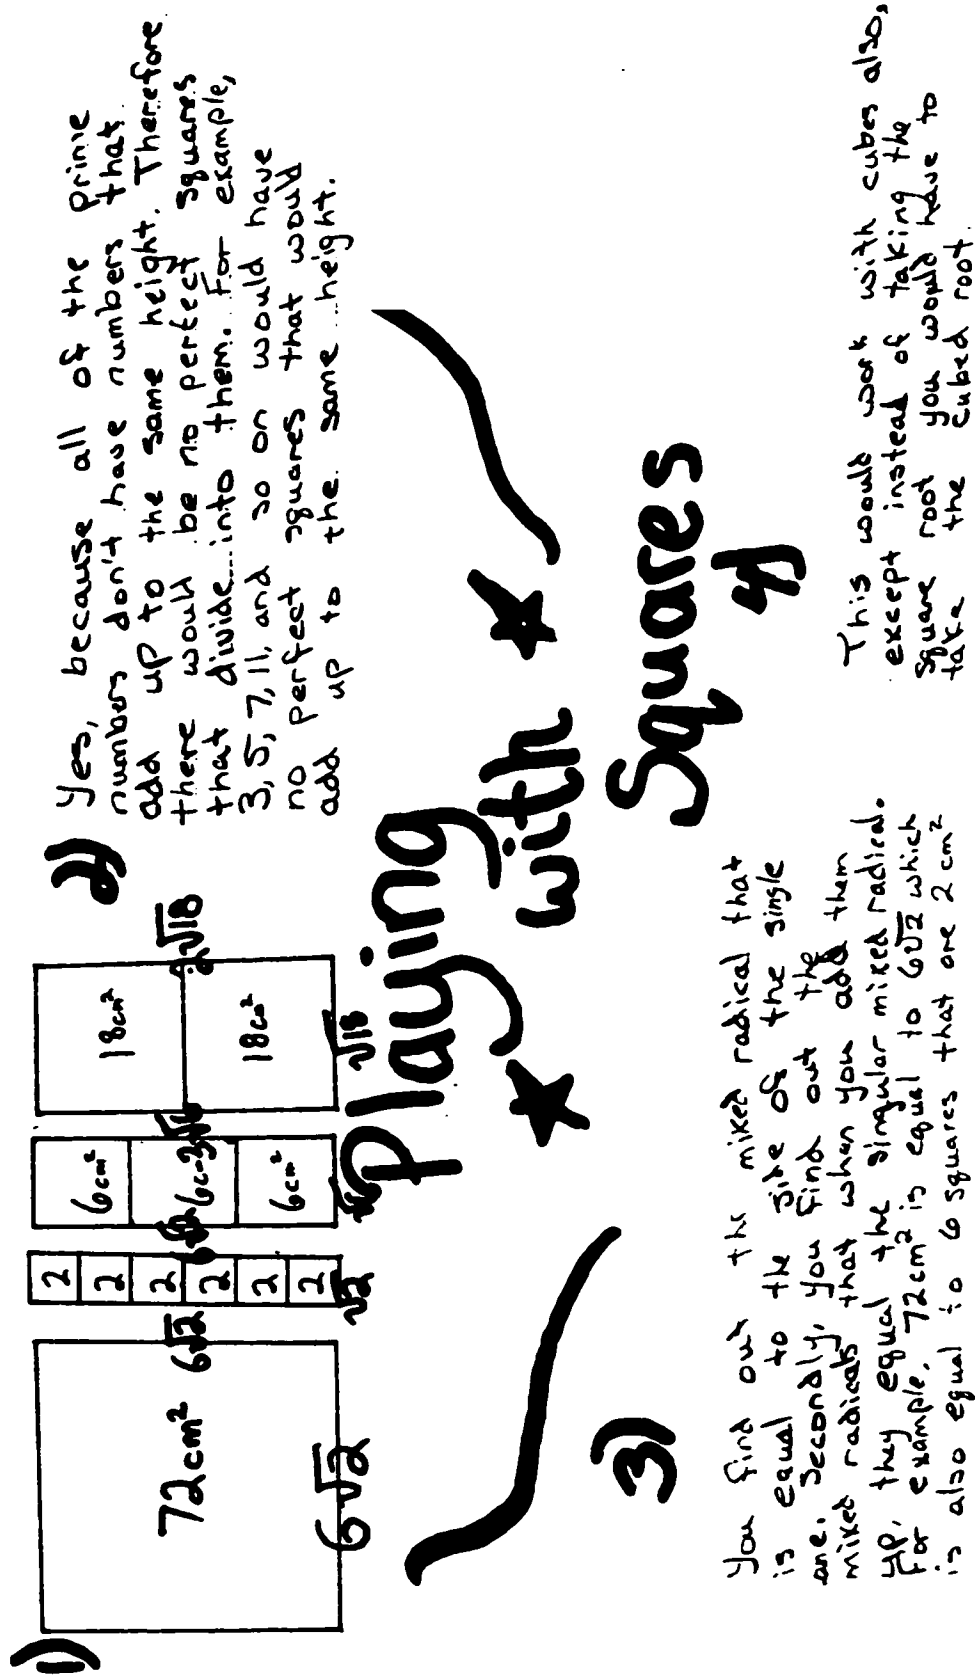 1)
72cm²
6√2
6√2
2
2
2
2
2
2
√2
6√2
6cm²
6cm²
6cm²
18cm²
18cm²
√18
2√18
2)
Yes, because all of the prime
numbers don't have numbers that
add up to the same height. Therefore
there would be no perfect squares
that divide into them. For example,
3, 5, 7, 11, and so on would have
no perfect squares that would
add up to the same height.
Playing
with
Squares
3)
You find out the mixed radical that
is equal to the side of the single
one. Secondly, you find out the
mixed radicals that when you add them
up, they equal the singular mixed radical.
For example, 72cm² is equal to 6√2 which
is also equal to 6 squares that are 2 cm²
4)
This would work with cubes also,
except instead of taking the
square root you would have to
take the cubed root.